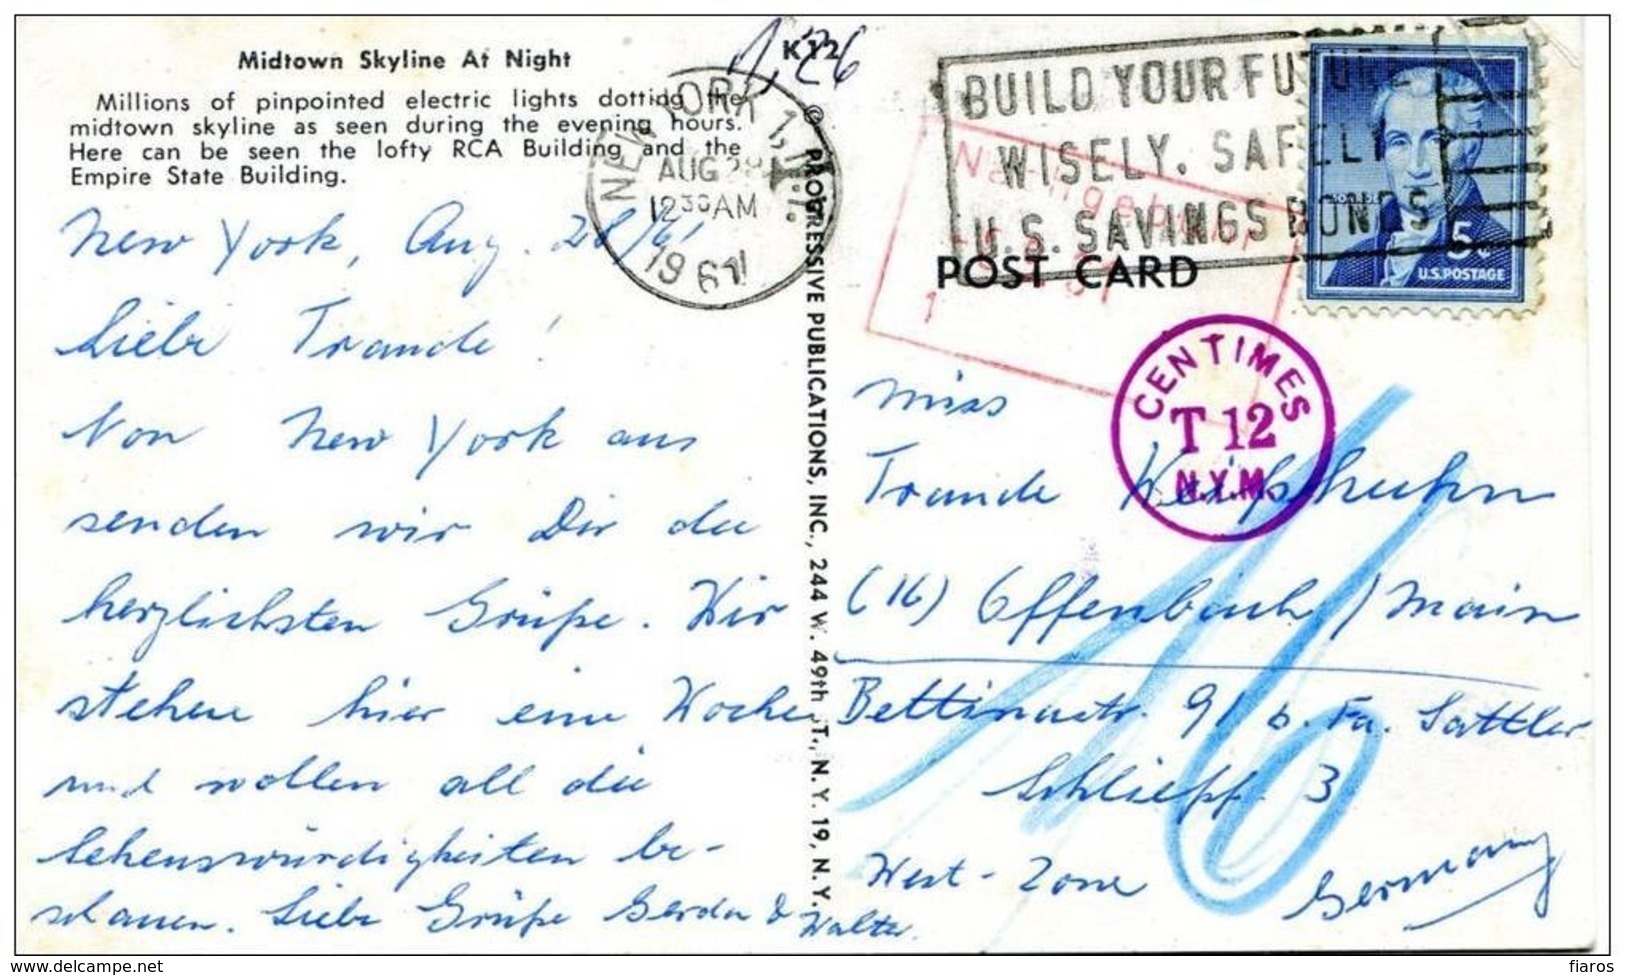 Midtown Skyline At Night
Millions of pinpointed electric lights dotting the
midtown skyline as seen during the evening hours.
Here can be seen the lofty RCA Building and the
Empire State Building.
K12
NEW YORK 1, N.Y.
AUG 28
12 30 AM
1961
New York, Aug. 28/61
Liebe Traude!
Von New York aus
senden wir Dir die
herzlichsten Grüße. Wir
stehen hier eine Woche
und wollen all die
Sehenswürdigkeiten be-
schauen. Liebe Grüße Gerda & Walter.
© PROGRESSIVE PUBLICATIONS, INC., 244 W. 49th ST., N. Y. 19, N. Y.
BUILD YOUR FUTURE
WISELY, SAFELY
U.S. SAVINGS BONDS
5¢
U.S. POSTAGE
Nachgebühr
POST CARD
CENTIMES
T 12
N.Y.M.
16
Miss
Traude
(16) Offenbach / Main
Bettinastr. 91 b. Fa. Sattler
Schließf. 3
West-Zone
Germany
delcampe.net
fiaros